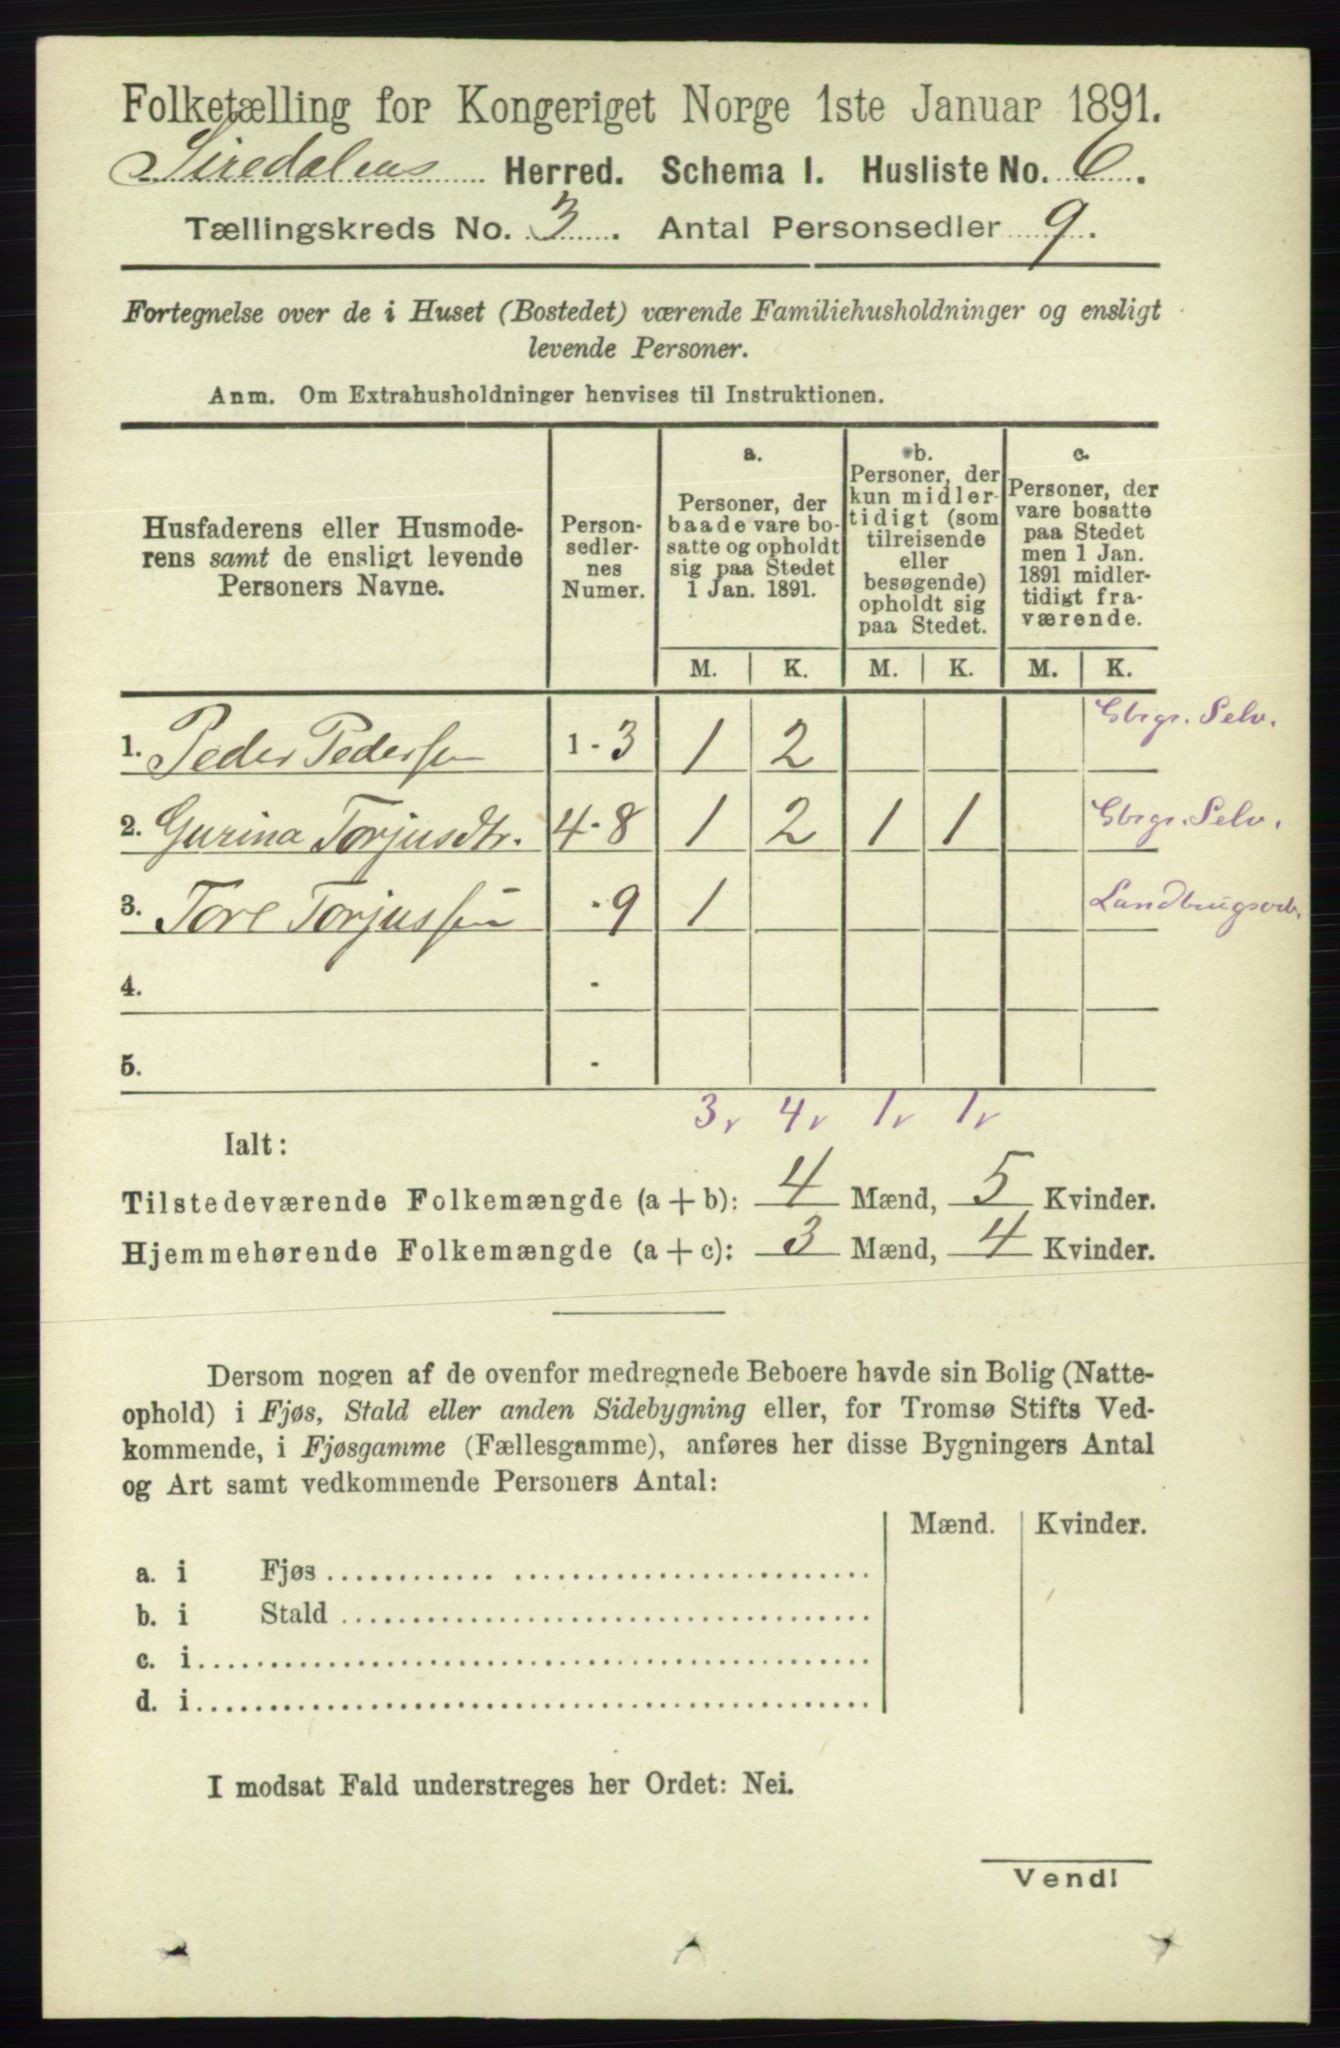 Folketælling for Kongeriget Norge 1ste Januar 1891.
Siredalens Herred. Schema 1. Husliste No. 6.
Tællingskreds No. 3. Antal Personsedler 9.
Fortegnelse over de i Huset (Bostedet) værende Familiehusholdninger og ensligt
levende Personer.
Anm. Om Extrahusholdninger henvises til Instruktionen.
Husfaderens eller Husmode-
rens samt de ensligt levende
Personers Navne.
Person-
sedler-
nes
Numer.
a.
Personer, der
baade vare bo-
satte og opholdt
sig paa Stedet
1 Jan. 1891.
b.
Personer, der
kun midler-
tidigt (som
tilreisende
eller
besøgende)
opholdt sig
paa Stedet.
c.
Personer, der
vare bosatte
paa Stedet
men 1 Jan.
1891 midler-
tidigt fra-
værende.
M. K. M. K. M. K.
1. Peder Pedersen 1 - 3 1 2 Gbrgr. Selv.
2. Gurina Torjusdtr. 4 - 8 1 2 1 1 Gbrgr. Selv.
3. Tore Torjussen - 9 1 Landbrugsarb.
4. -
5. -
3 v 4 v 1 v 1 v
Ialt:
Tilstedeværende Folkemængde (a + b): 4 Mænd, 5 Kvinder.
Hjemmehørende Folkemængde (a + c): 3 Mænd, 4 Kvinder.
Dersom nogen af de ovenfor medregnede Beboere havde sin Bolig (Natte-
ophold) i Fjøs, Stald eller anden Sidebygning eller, for Tromsø Stifts Ved-
kommende, i Fjøsgamme (Fællesgamme), anføres her disse Bygningers Antal
og Art samt vedkommende Personers Antal:
Mænd. Kvinder.
a. i Fjøs
b. i Stald
c. i
d. i
I modsat Fald understreges her Ordet: Nei.
Vend!